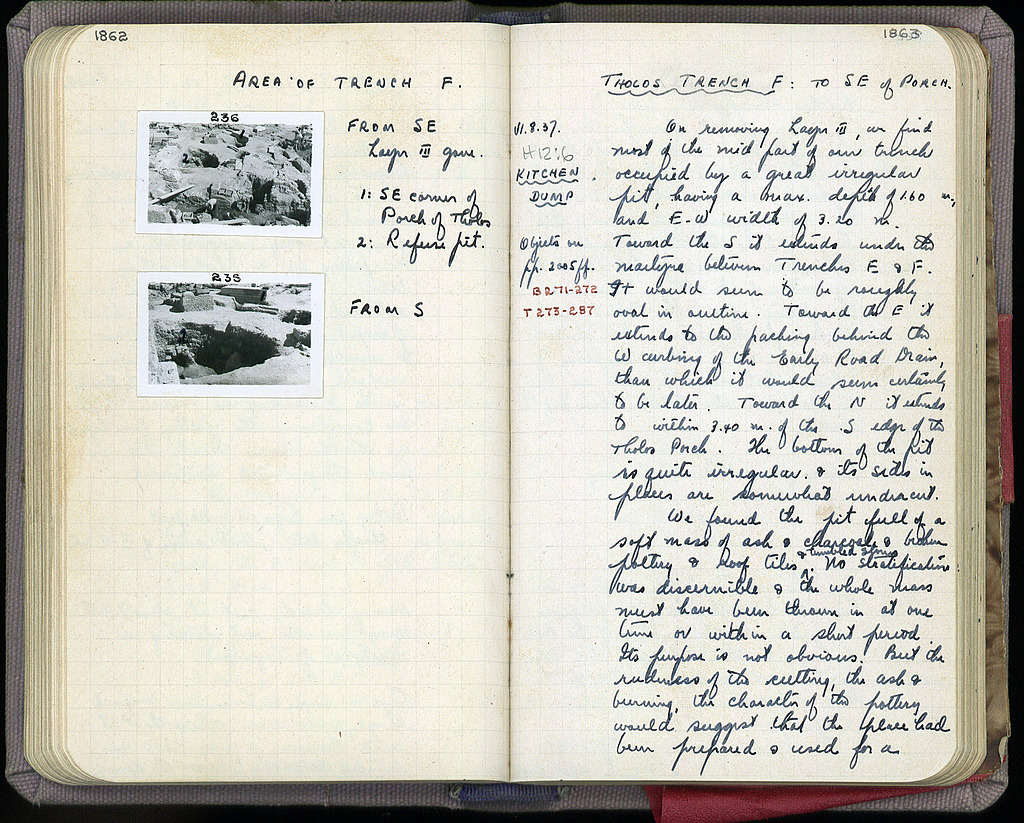 1862
AREA OF TRENCH F.
236
FROM SE
Layer III gone.
1: SE corner of
Porch of Tholos
2: Refuse pit.
235
FROM S
1863
THOLOS TRENCH F: TO SE of PORCH.
11.8.37.
H12:6
KITCHEN
DUMP
Objects on
pp. 2005ff.
B 271-272
T 273-287
On removing Layer III, we find
most of the mid part of our trench
occupied by a great irregular
pit, having a max. depth of 1.60 m.,
and E-W width of 3.20 m.
Toward the S it extends under the
martyra between Trenches E & F.
It would seem to be roughly
oval in outline. Toward the E it
extends to the packing behind the
W curbing of the Early Road Drain,
than which it would seem certainly
to be later. Toward the N it extends
to within 3.40 m. of the S edge of the
Tholos Porch. The bottom of the pit
is quite irregular & its sides in
places are somewhat undercut.
We found the pit full of a
soft mass of ash & charcoal & broken
pottery & roof tiles & tumbled stones. No stratification
was discernible & the whole mass
must have been thrown in at one
time or within a short period.
Its purpose is not obvious. But the
rudeness of the cutting, the ash &
burning, the character of the pottery
would suggest that the place had
been prepared & used for a